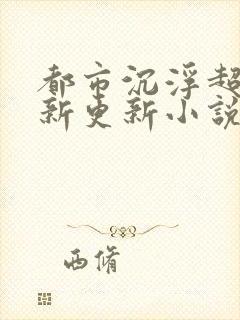 都市沉浮超
新更新小說
西脩